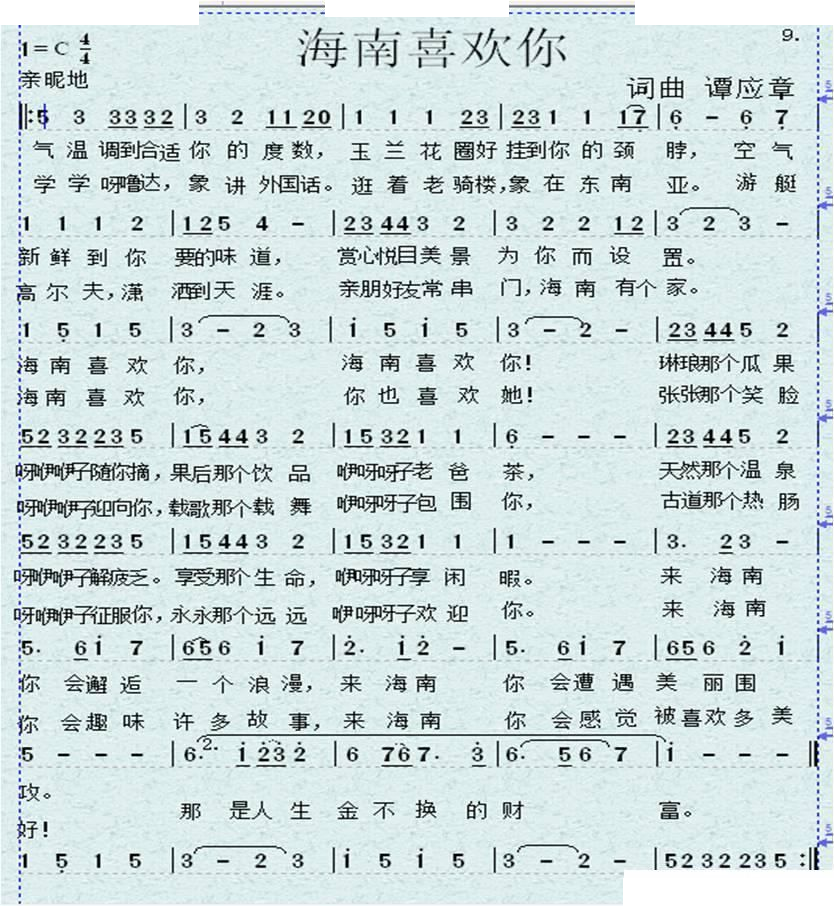 海南喜欢你
9.
1=C 4/4
亲昵地
词曲 谭应章
‖:5 3 3332|3 2 1120|1 1 1 23|231 1 17|6 - 6 7
气温调到合适你的度数，玉兰花圈好挂到你的颈脖，空气
学学呀噜达，象讲外国话。逛着老骑楼，象在东南亚。游艇
1 1 1 2 |125 4 - |23 443 2 |3 2 2 12 |3 2 3 -
新鲜到你要的味道，赏心悦目美景为你而设置。
高尔夫，潇洒到天涯。亲朋好友常串门，海南有个家。
1 5 1 5 |3 - 2 3 |i 5 i 5 |3 - 2 - |23 445 2
海南喜欢你，海南喜欢你！琳琅那个瓜果
海南喜欢你，你也喜欢她！张张那个笑脸
5232235 |15443 2 |15321 1 |6 - - - |23 445 2
呀咿咿子随你摘，果后那个饮品咿呀呀子老爸茶，天然那个温泉
呀咿咿子迎向你，载歌那个载舞咿呀呀子包围你，古道那个热肠
5232235 |15443 2 |15321 1 |1 - - - |3. 23 -
呀咿咿子解疲乏。享受那个生命，咿呀呀子享闲暇。来海南
呀咿咿子征服你，永永那个远远咿呀呀子欢迎你。来海南
5. 6i 7 |656 i 7 |2. i2 - |5. 6i 7 |656 2 i
你会邂逅一个浪漫，来海南你会遭遇美丽围
你会趣味许多故事，来海南你会感觉被喜欢多美
5 - - - |6. 2. i 232 |6 767. 3 |6. 56 7 |i - - - ‖
攻。
那是人生金不换的财富。
好！
1 5 1 5 |3 - 2 3 |i 5 i 5 |3 - 2 - |5232235 :‖